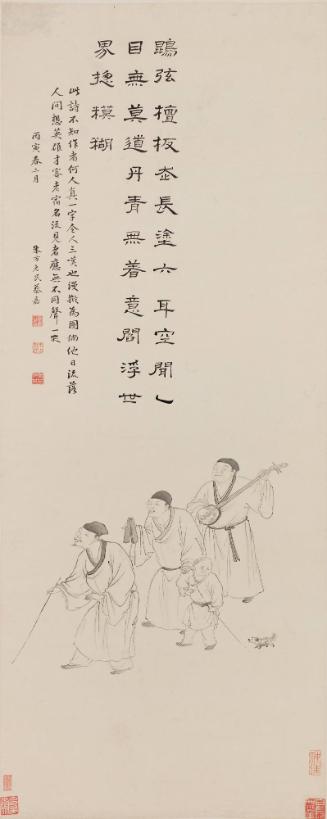 鵾弦檀板走長塗六耳空聞一
目無莫道丹青無着意閻浮世
界捻模糊
此詩不知作者何人真一字令人三嘆也漫擬為圖倘他日流落
人間想英雄才客老宿名流見者應無不同聲一哭
丙寅春二月 朱方老民蔡嘉